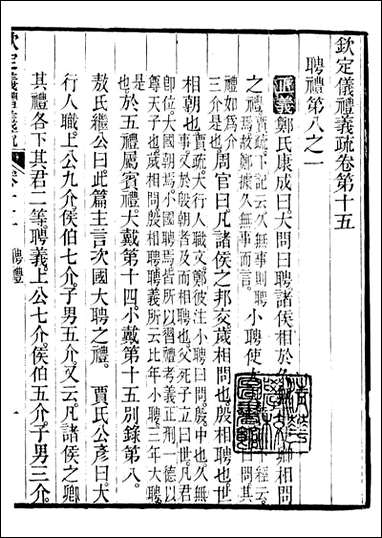 欽定儀禮義疏卷第十五
聘禮第八之一
正義鄭氏康成曰大問曰聘諸侯相於久卿相問
之禮賈疏下記云久無事則聘
焉故鄭據久無事而言小聘使大經云
問其
禮如為介
三介是也周官曰凡諸侯之邦交歲相問也殷相聘也世
相朝也賈疏行人職文鄭彼注小聘曰問殷中也久無
事又於殷朝者及而相聘也父死子立曰世凡君
即位大國朝焉小國聘焉皆所以習禮考義正刑一德以
尊天子也歲相問殷相聘聘義所云比年小聘三年大聘
是也於五禮屬賓禮大戴第十四小戴第十五別錄第八
敖氏繼公曰此篇主言次國大聘之禮 賈氏公彥曰大
行人職上公九介侯伯七介子男五介又云凡諸侯之卿
其禮各下其君二等聘義上公七介侯伯五介子男三介
聘禮
一